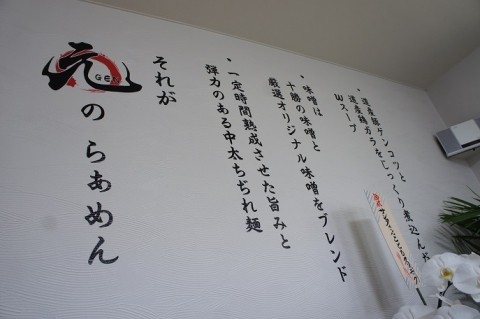 ・道産豚ゲンコツと
道産鶏ガラをじっくり煮込んだ
Wスープ
・味噌は
十勝の味噌と
厳選オリジナル味噌をブレンド
・一定時間熟成させた旨みと
弾力のある中太ちぢれ麺
それが
元 GEN のらあめん